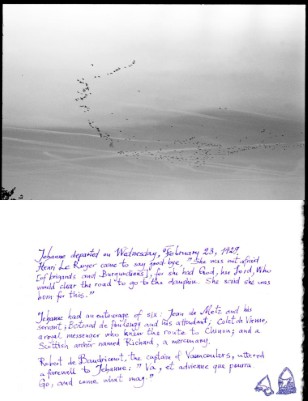 Jehanne departed on Wednesday, February 23, 1429.
Henri Le Royer came to say good-bye. "She was not afraid
[of brigands and Burgundians], for she had God, her Lord, Who
would clear the road to go to the dauphin. She said she was
born for this."
Jehanne had an entourage of six: Jean de Metz and his
servant; Bertrand de Poulengy and his attendant; Colet de Vienne,
a royal messenger who knew the route to Chinon; and a
Scottish archer named Richard, a mercenary.
Robert de Baudricourt, the captain of Vaucouleurs,
a farewell to Jehanne: "Va, et advienne que pourra
Go, and come what may."